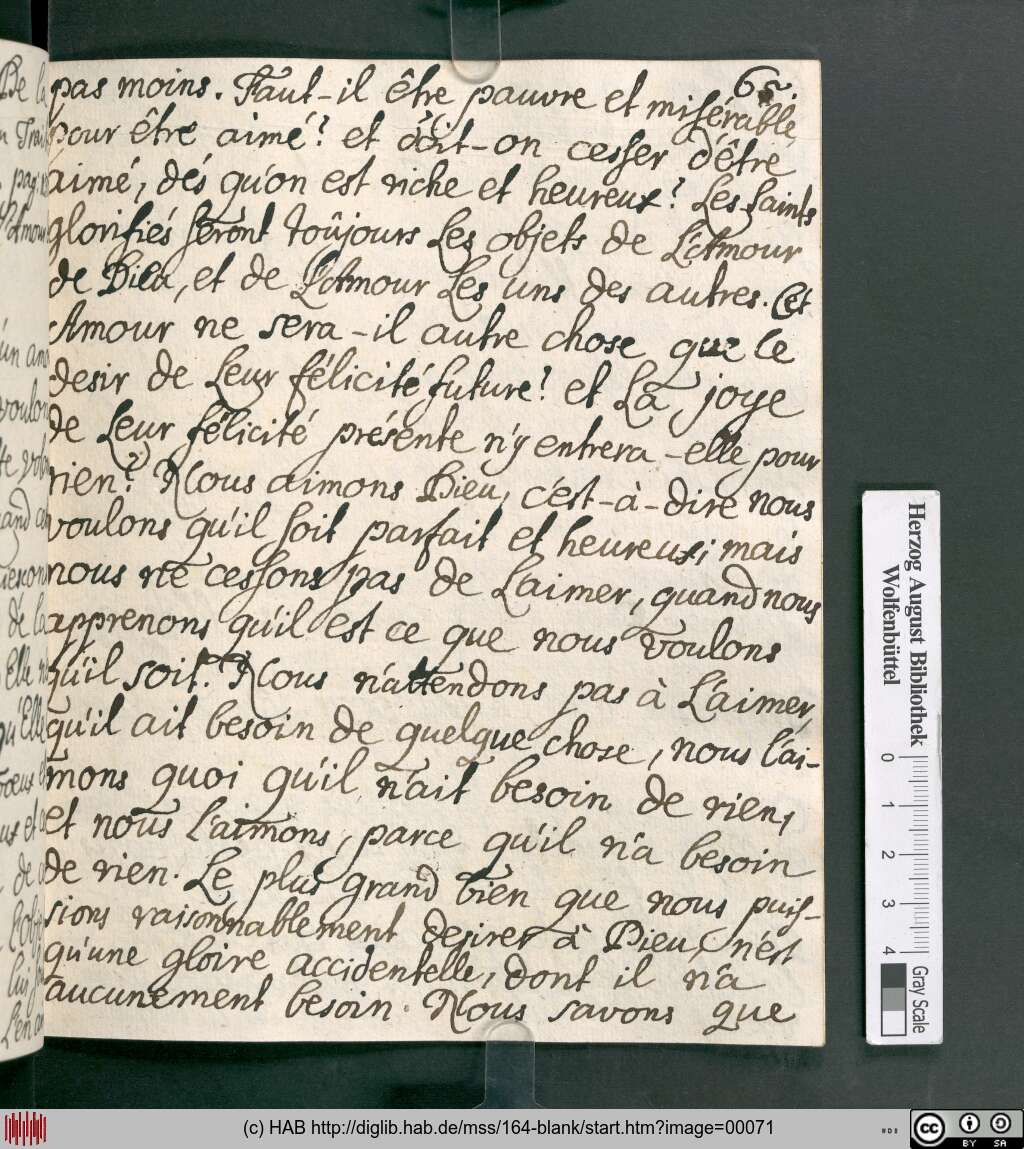 65.
pas moins. Faut-il être pauvre et misérable,
pour être aimé? et doit-on cesser d'être
aimé, dés qu'on est riche et heureux? Les Saints
glorifiés seront toûjours Les objets de L'Amour
de Dieu, et de L'Amour Les uns des autres. Cet
Amour ne sera-il autre chose que le
desir de Leur félicité future? et La joye
de Leur félicité présente n'y entrera-elle pour
rien? Nous aimons Dieu, c'est-à-dire nous
voulons qu'il soit parfait et heureux; mais
nous ne cessons pas de L'aimer, quand nous
apprenons qu'il est ce que nous voulons
qu'il soit. Nous n'attendons pas à L'aimer,
qu'il ait besoin de quelque chose, nous l'ai-
mons quoi qu'il n'ait besoin de rien,
et nous l'aimons, parce qu'il n'a besoin
de rien. Le plus grand bien que nous puis-
sions raisonnablement desirer à Dieu, n'est
qu'une gloire accidentelle, dont il n'a
aucunement besoin. Nous savons que
Herzog August Bibliothek
Wolfenbüttel
0 1 2 3 4
Gray Scale
(c) HAB http://diglib.hab.de/mss/164-blank/start.htm?image=00071
cc BY SA